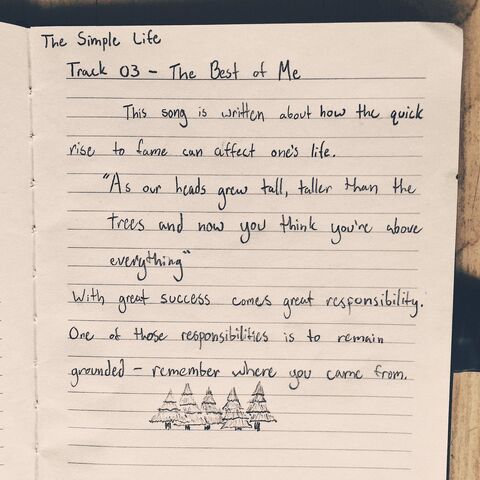 The Simple Life
Track 03 - The Best of Me
This song is written about how the quick
rise to fame can affect one's life.
"As our heads grew tall, taller than the
trees and now you think you're above
everything"
With great success comes great responsibility.
One of those responsibilities is to remain
grounded - remember where you came from.